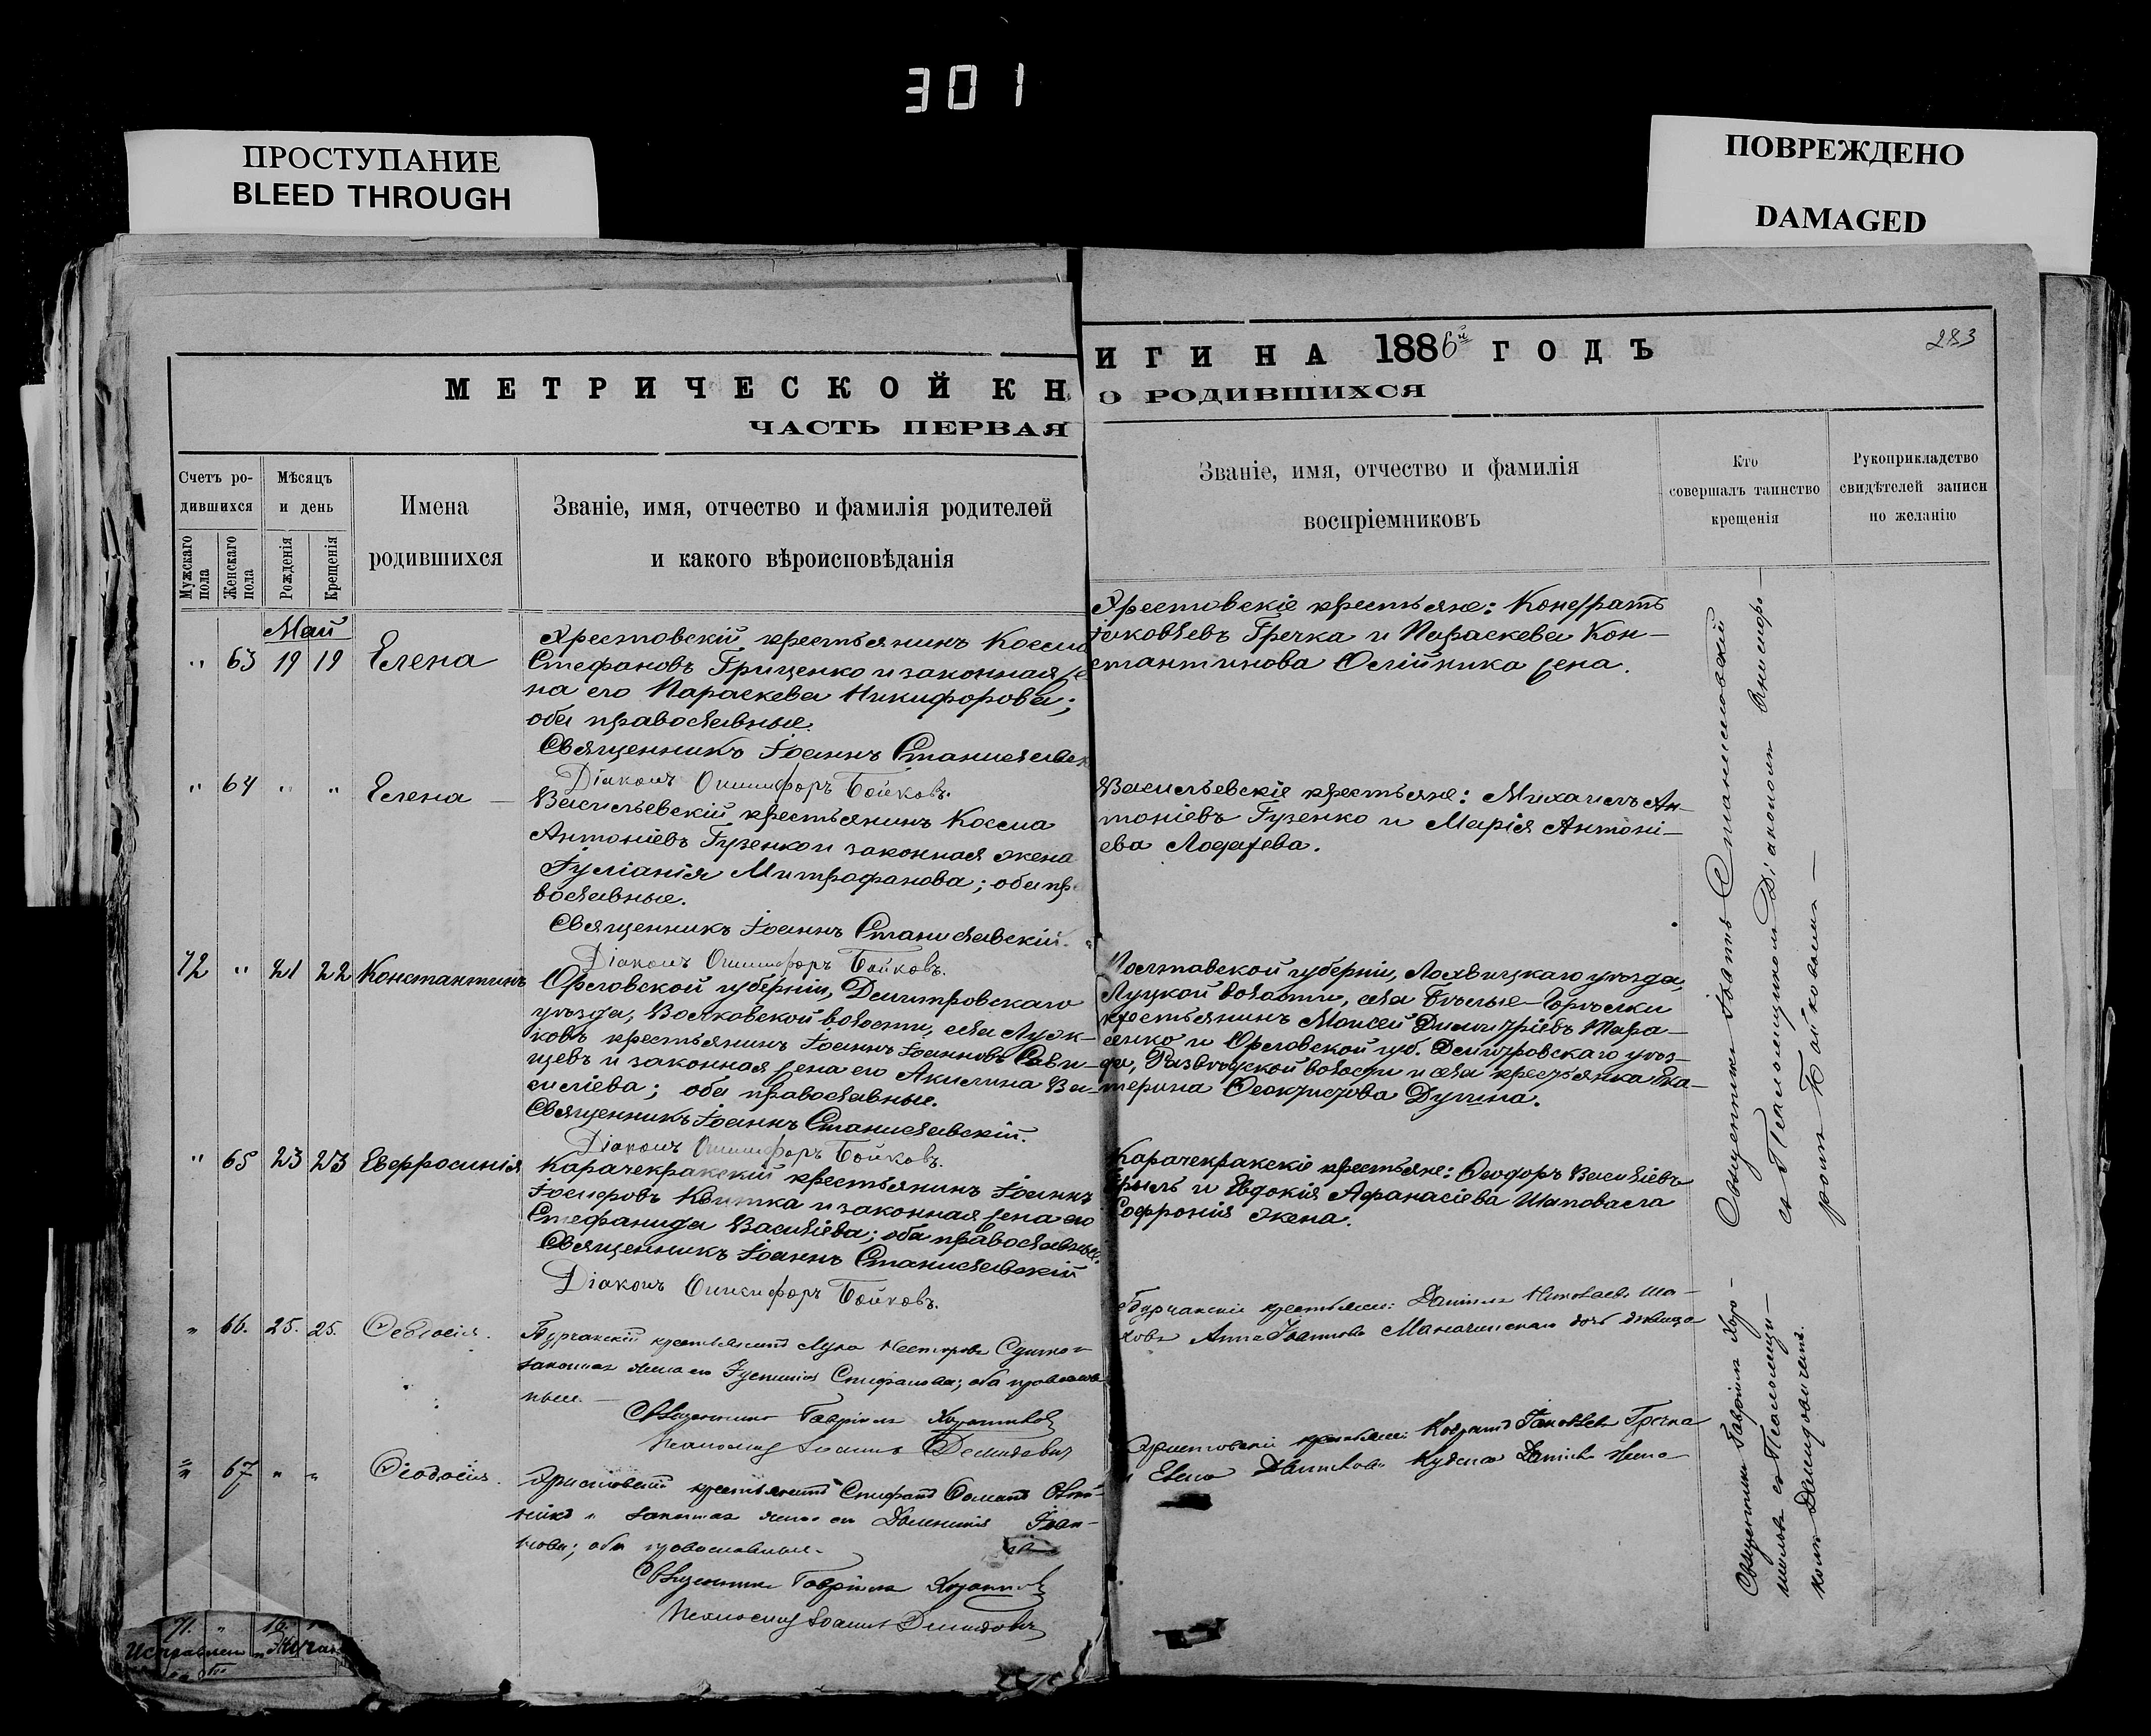 301
ПРОСТУПАНИЕ
BLEED THROUGH
ПОВРЕЖДЕНО
DAMAGED
283
МЕТРИЧЕСКОЙ КН
ИГИ НА 1886й ГОДЪ
ЧАСТЬ ПЕРВАЯ
О РОДИВШИХСЯ
Счетъ ро-
дившихся
Мужскаго пола
Женскаго пола
Мѣсяцъ
и день
Рожденія
Крещенія
Имена
родившихся
Званіе, имя, отчество и фамилія родителей
и какого вѣроисповѣданія
Званіе, имя, отчество и фамилія
воспріемниковъ
Кто
совершалъ таинство
крещенія
Рукоприкладство
свидѣтелей записи
по желанію
Май
" 63 19 19 Елена
Хрестовскій крестьянинъ Косма
Стефановъ Гриценко и законная же
на его Параскева Никифорова;
оба православные.
Священникъ Іоаннъ Станиславск
Діаконъ Онисифоръ Бойковъ.
Хрестовскіе крестьяне: Кондратъ
Іаковлевъ Гречка и Параскева Кон-
стантинова Олійника жена.
" 64 " " Елена
Васильевскій крестьянинъ Косма
Антоніевъ Гузенко и законная жена
Іуліанія Митрофанова; оба пра
вославные.
Священникъ Іоаннъ Станиславскій.
Діаконъ Онисифоръ Бойковъ.
Васильевскіе крестьяне: Михаилъ Ан-
тоніевъ Гузенко и Марія Антоні-
ева
72 " 21 22 Константинъ
Орловской губерніи, Дмитровскаго
уѣзда, волости, села Луж-
ковъ крестьянинъ Іоаннъ Іоанновъ Сави-
цевъ и законная жена его Акилина Ва-
силіева; оба православные.
Священникъ Іоаннъ Станиславскій.
Діаконъ Онисифоръ Бойковъ.
Полтавской губерніи, Лохвицкаго уѣзда,
Луцкой волости, села
крестьянинъ Моисей Димитріевъ Тара-
сенко и Орловской губ. Дмитровскаго уѣз-
да, волости и села крестьянка Ека-
терина Феоктистова
" 65 23 23 Евфросинія
Карачекракскій крестьянинъ Іоаннъ
Іосифовъ Квитка и законная жена его
Стефанида Василіева; оба православные.
Священникъ Іоаннъ Станиславскій
Діаконъ Онисифоръ Бойковъ.
Карачекракскіе крестьяне: Феодоръ Василіевъ
и Евдокія Афанасіева Шаповала
Софронія жена.
" 66. 25. 25. Феодосія.
Бурчакскій крестьянинъ Лука Несторовъ и
законная жена его Іустинія Стефанова; оба православ
ные.
Священникъ Гавріилъ
Псаломщ Іоаннъ Демидовичъ
Бурчакскіе крестьяне: Даніилъ Николаевъ
Анна Іоаннова дочь дѣвица
" 67 " " Феодосія.
Христовскій крестьянинъ Стефанъ
и законная жена его Іоан-
нова; оба православные.
Священникъ Гавріилъ
Псаломщ Іоаннъ Демидовичъ
Христовскіе крестьяне: Кодратъ Іаковлевъ Гречка
и Елена жена
Священникъ Іоаннъ Станиславскій
съ Псаломщикомъ Діакономъ Онисифо-
ромъ Бойковымъ
Священникъ Гавріилъ
съ Псаломщи-
комъ Демидовичемъ.
71. " 16.